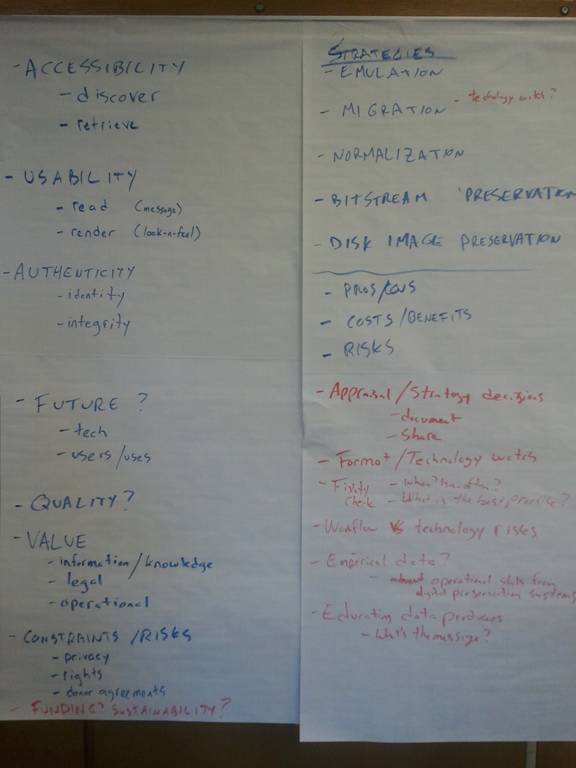 - ACCESSIBILITY
- discover
- retrieve
- USABILITY
- read (message)
- render (look-n-feel)
- AUTHENTICITY
- identity
- integrity
- FUTURE ?
- tech
- users/uses
- QUALITY?
- VALUE
- information/knowledge
- legal
- operational
- CONSTRAINTS/RISKS
- privacy
- rights
- donor agreements
- FUNDING? SUSTAINABILITY?
STRATEGIES
- EMULATION
- MIGRATION - technology watch?
- NORMALIZATION
- BITSTREAM PRESERVATION
- DISK IMAGE PRESERVATION
- PROS/CONS
- COSTS/BENEFITS
- RISKS
- Appraisal/Strategy decisions
- document
- Share
- Format/Technology watch
- Fixity check - When? how often?
- What is the best practice?
- Workflow vs technology risks
- Empirical data?
- operational stats from
digital preservation systems
- Educating data producers
- What's the message?